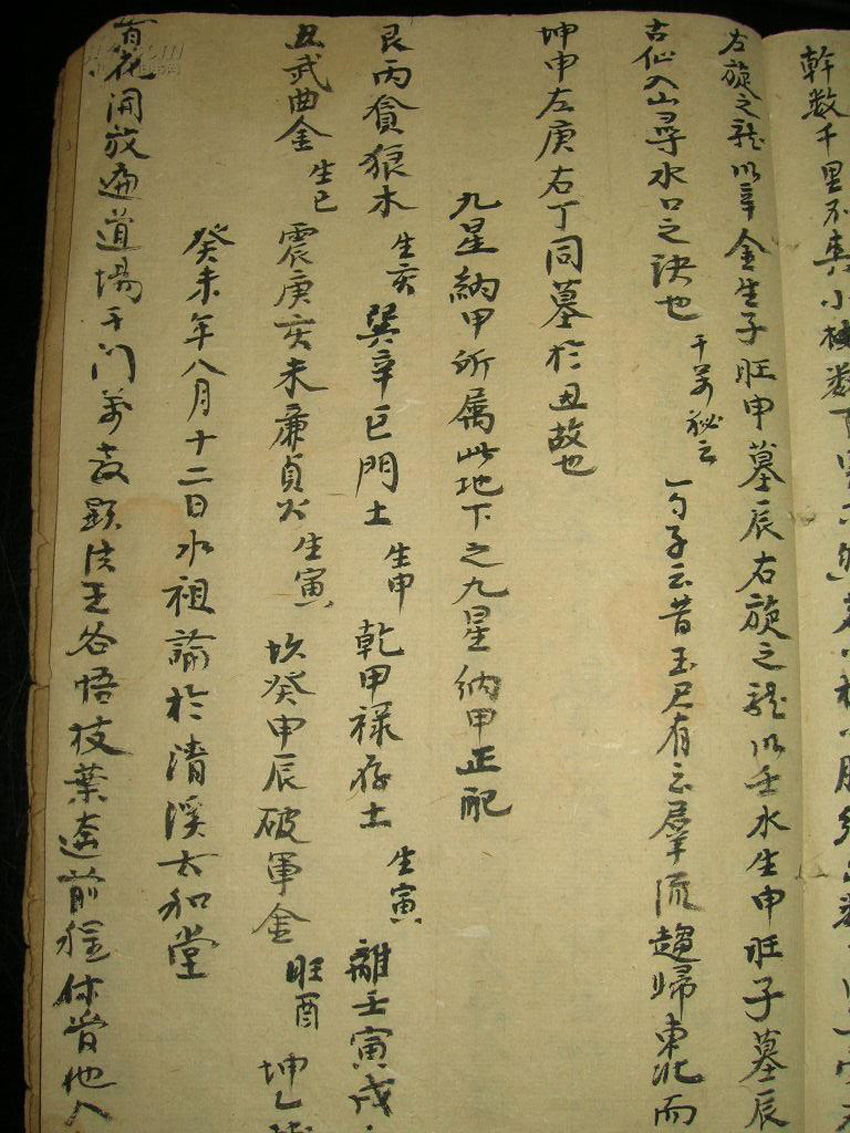 幹数千里不
左旋之龍以辛金生子旺申墓辰右旋之龍以壬水生申旺子墓辰
古仙入山尋水口之訣也 千萬秘之 一勺子云昔玉尺有云羣流趨歸東北而
坤申左庚右丁同墓於丑故也
九星納甲所属此地下之九星納甲正配
艮丙貪狼木 生亥 巽辛巨門土 生申 乾甲禄存土 生寅 離壬寅戌
丑武曲金 生巳 震庚亥未廉貞火 生寅 坎癸申辰破軍金 旺酉 坤乙
癸未年八月十二日水祖諭於清溪太和堂
花開放遍道場千门萬教顕法王各悟枝葉造前程休管他人